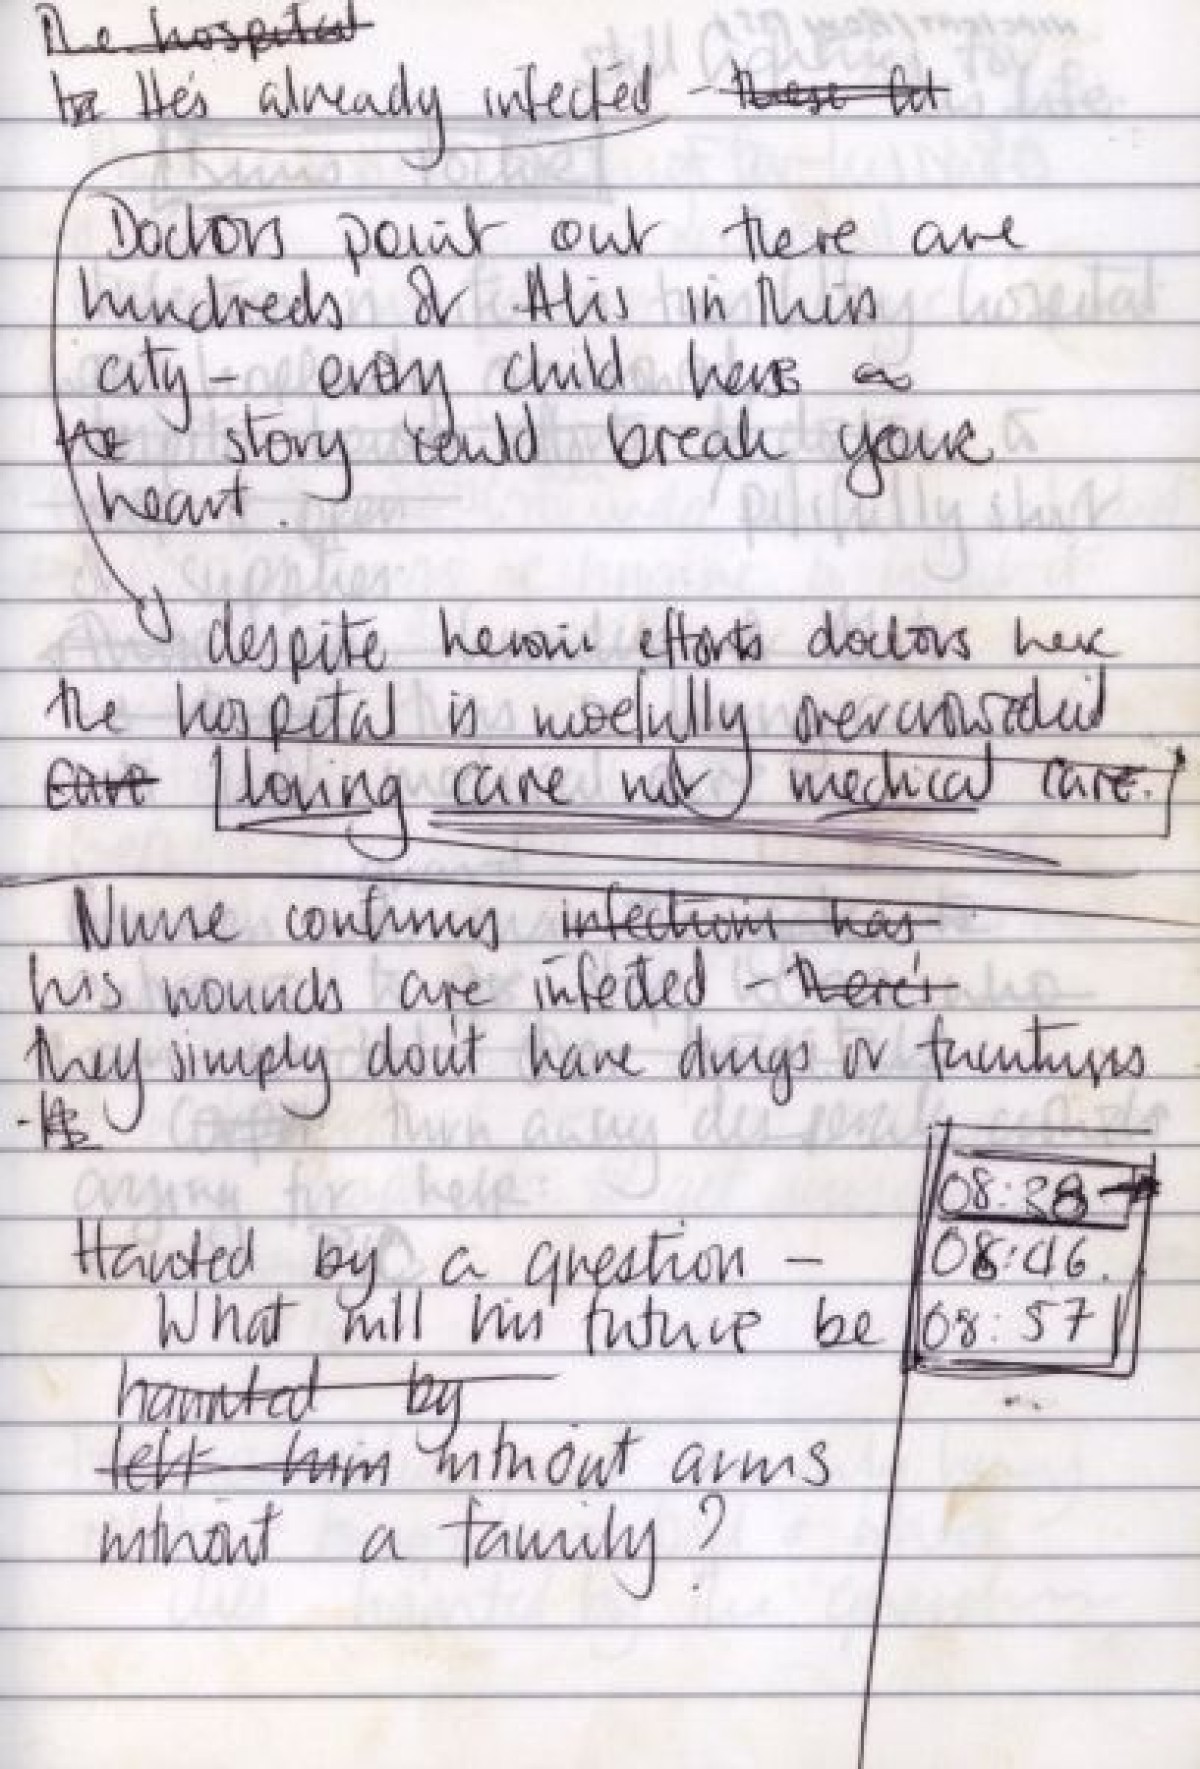 The hospital
He's already infected - these
Doctors point out there are
hundreds of Alis in this
city - every child here
story could break your
heart.
despite heroic efforts doctors here
the hospital is woefully overcrowded
Care loving care not medical care.
Nurse continues infections has
his wounds are infected - there's
they simply don't have drugs or
08:38
Haunted by a question -
08:46
What will his future be
08:57
haunted by
left him without arms
without a family?